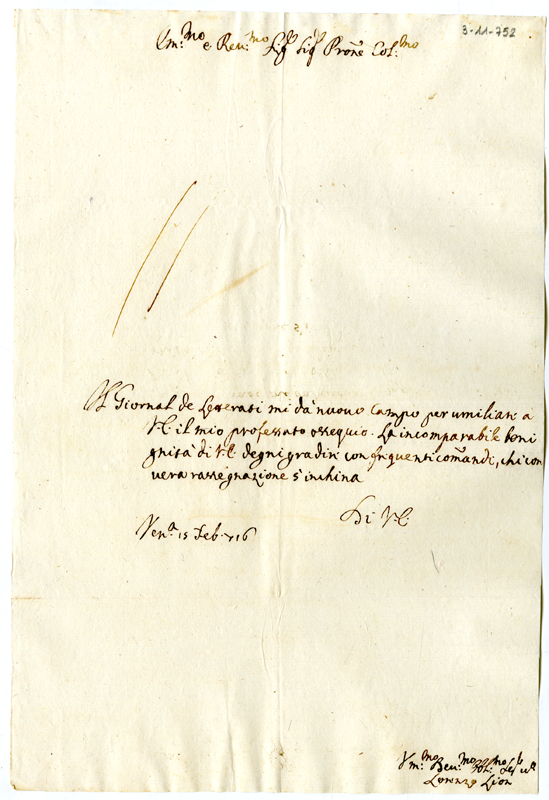 3-11-752
Um:mo e Reu:mo Sigr Sigr Prone Col:mo
Il Giornal de Letterati mi dà nuouo Campo per umiliare a
V.E. il mio professato ossequio. La incomparabile beni
gnità di V.E. degni gradire con frequenti comandi, chi con
uera rassegnazione s'inchina
Di V.E.
Ven.a 15 Feb. 716
Um:mo Reu:mo
Lorenzo Lion